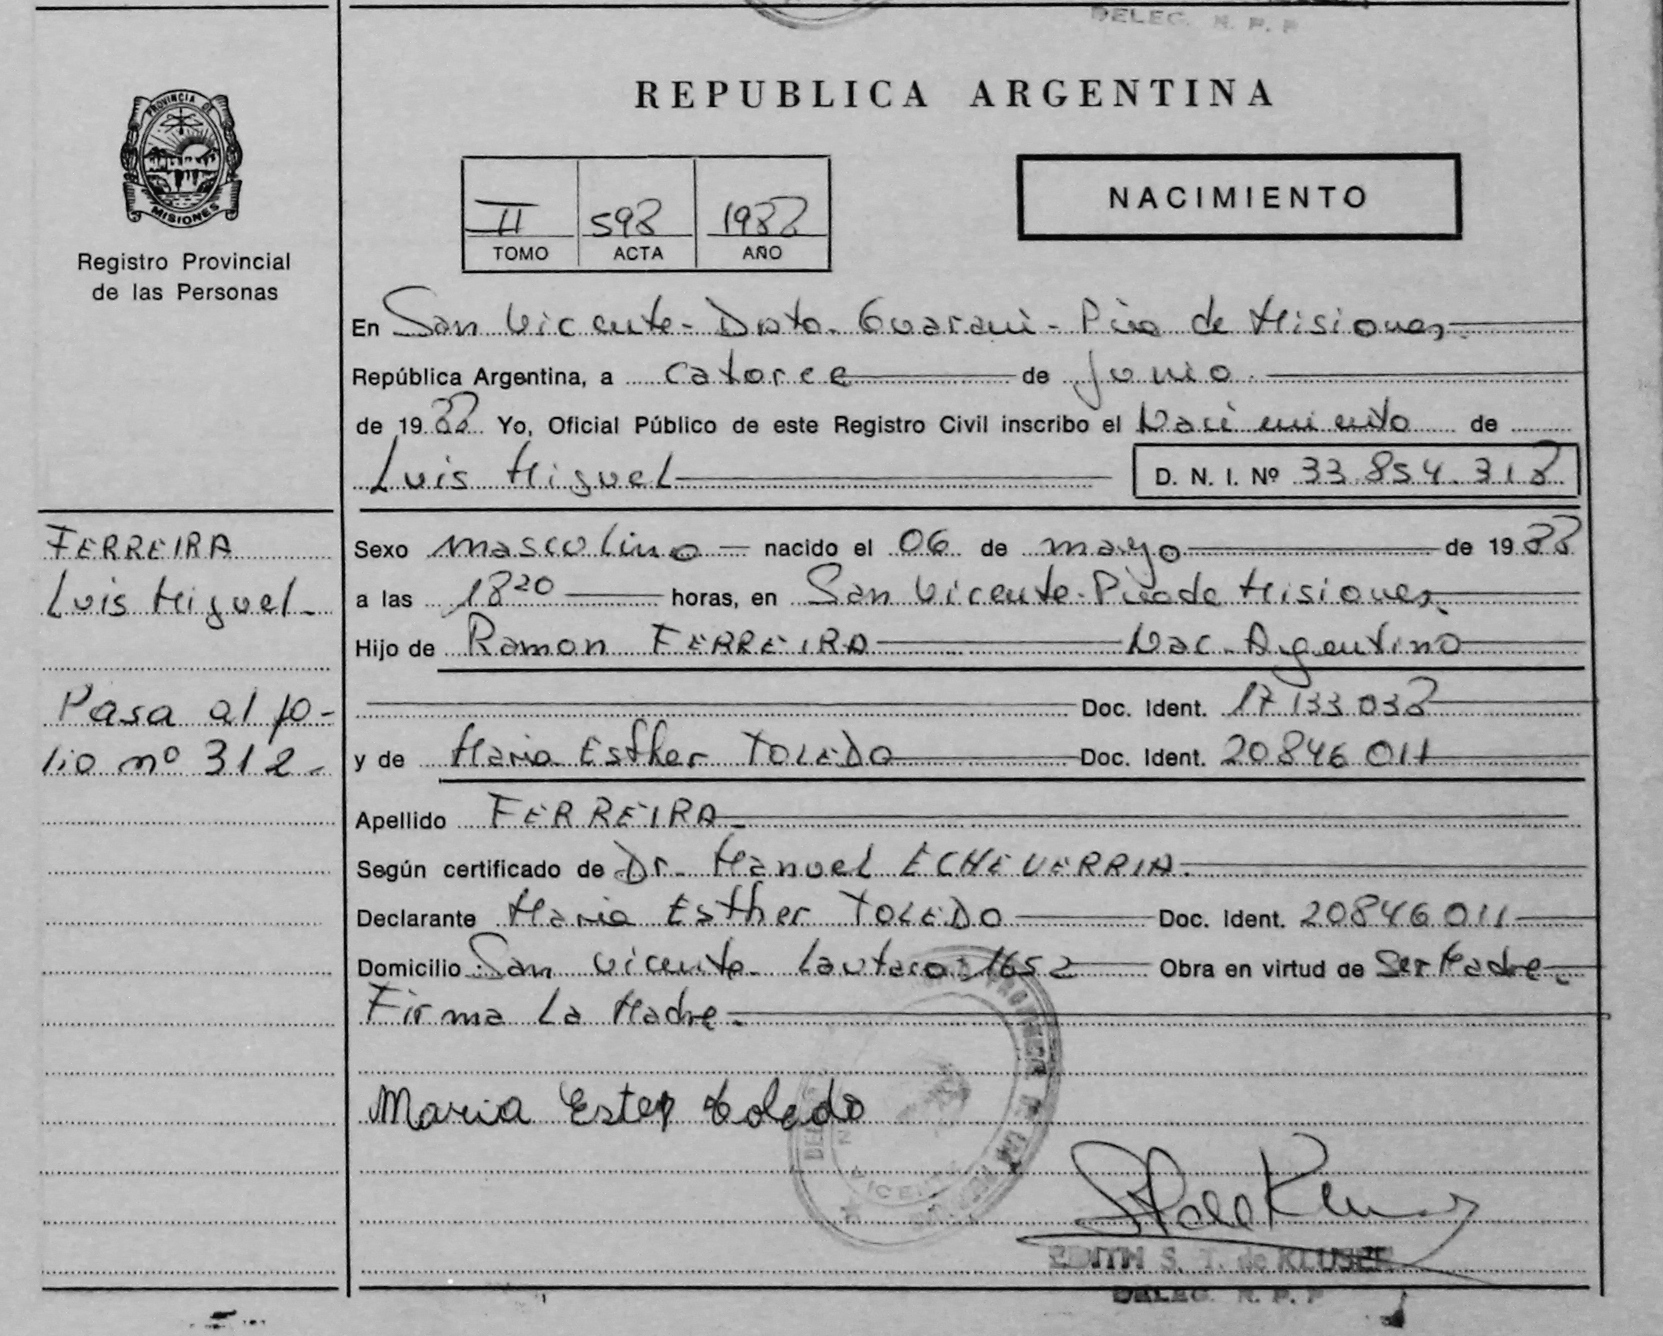 DELEG. R. P. P
PROVINCIA DE
MISIONES
Registro Provincial
de las Personas
REPUBLICA ARGENTINA
NACIMIENTO
II 598 1988
TOMO ACTA AÑO
En San Vicente - Dpto. Guaraní - Pcia de Misiones
República Argentina, a catorce de junio
de 1988 Yo, Oficial Público de este Registro Civil inscribo el Nacimiento de
Luis Miguel D. N. I. Nº 33.854.318
FERREIRA
Luis Miguel
Pasa al fo-
lio nº 312
Sexo masculino nacido el 06 de mayo de 1988
a las 18 20 horas, en San Vicente - Pcia de Misiones
Hijo de Ramon FERREIRA Nac. Argentino
Doc. Ident. 17 133 038
y de Maria Esther TOLEDO Doc. Ident. 20846 011
Apellido FERREIRA
Según certificado de Dr. Manuel ECHEVERRIA.
Declarante Maria Esther TOLEDO Doc. Ident. 20846 011
Domicilio San Vicente Lautaro 1652 Obra en virtud de Ser Madre
Firma La Madre.
Maria Ester toledo
EDITH S. T. de KLUSER
DELEG. R. P. P